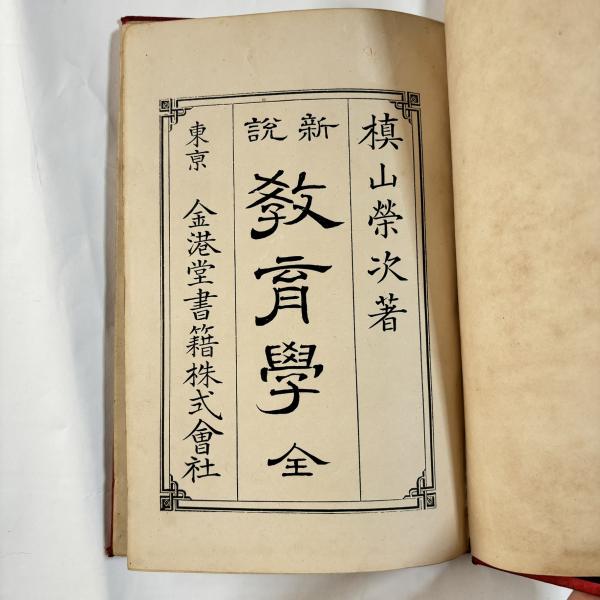 槙山榮次著
新說
敎育學 全
東亰 金港堂書籍株式會社